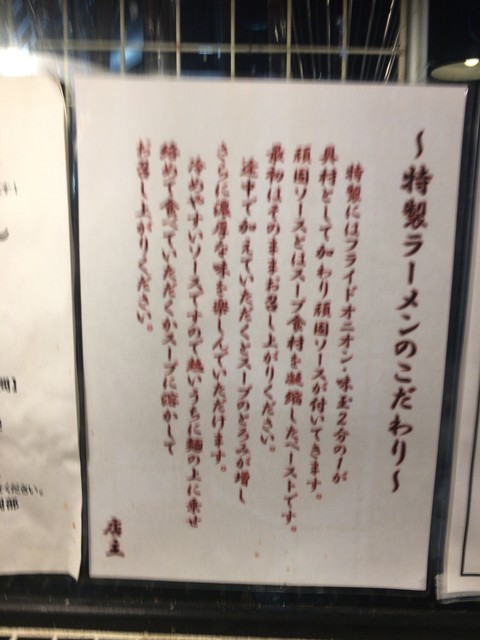 ～特製ラーメンのこだわり～
特製にはフライドオニオン・味玉2分の1が
具材として加わり頑固ソースが付いてきます。
頑固ソースとはスープ食材を凝縮したペーストです。
最初はそのままお召し上がりください。
途中で加えていただくとスープのとろみが増し
さらに濃厚な味を楽しんでいただけます。
冷めやすいソースですので熱いうちに麺の上に乗せ
絡めて食べていただくかスープに溶かして
お召し上がりください。
店主
ください。